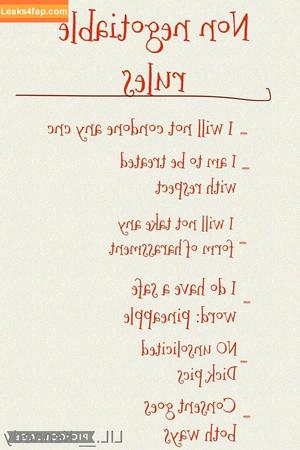 Leaks4fap.com
Non negotiable
rules
- I will not condone any cnc
- I am to be treated
with respect
- I will not take any
form of harassment
- I do have a safe
word: pineapple
- NO unsolicited
Dick pics
- Consent goes
both ways
PIC•COLLAGE